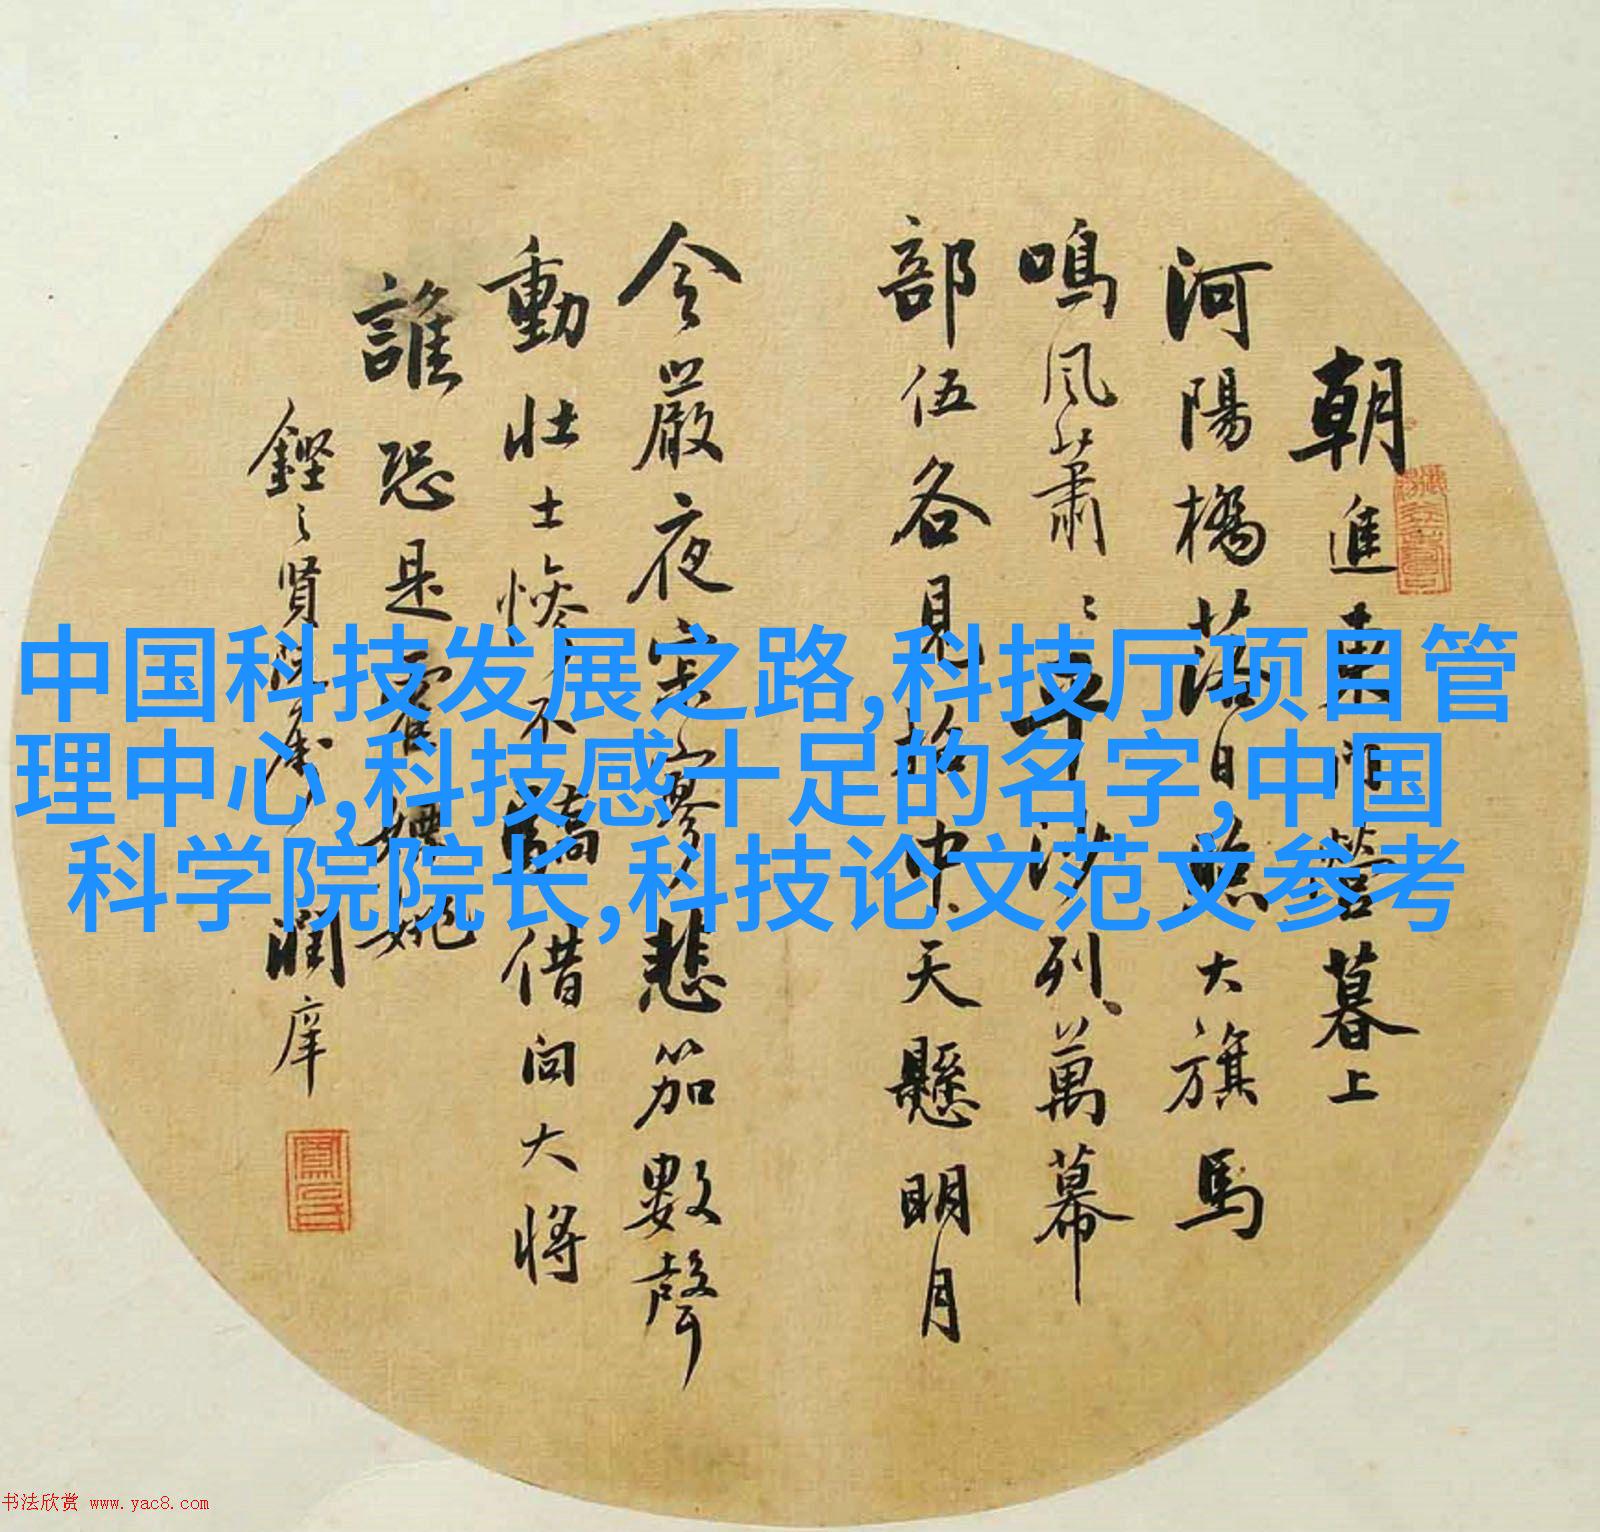 朝進東門營暮上
河陽橋落日照大旗馬
鳴風蕭〻平沙列萬幕
部伍各見招中天懸明月
令嚴夜寂寥悲笳數聲
動壯士慘不驕借問大將
誰恐是霍嫖姚
鏗之賢 潤庠
中国科技发展之路,科技厅项目管
理中心,科技感十足的名字,中国
科学院院长,科技论文范文参考
书法欣赏 www.yac8.com